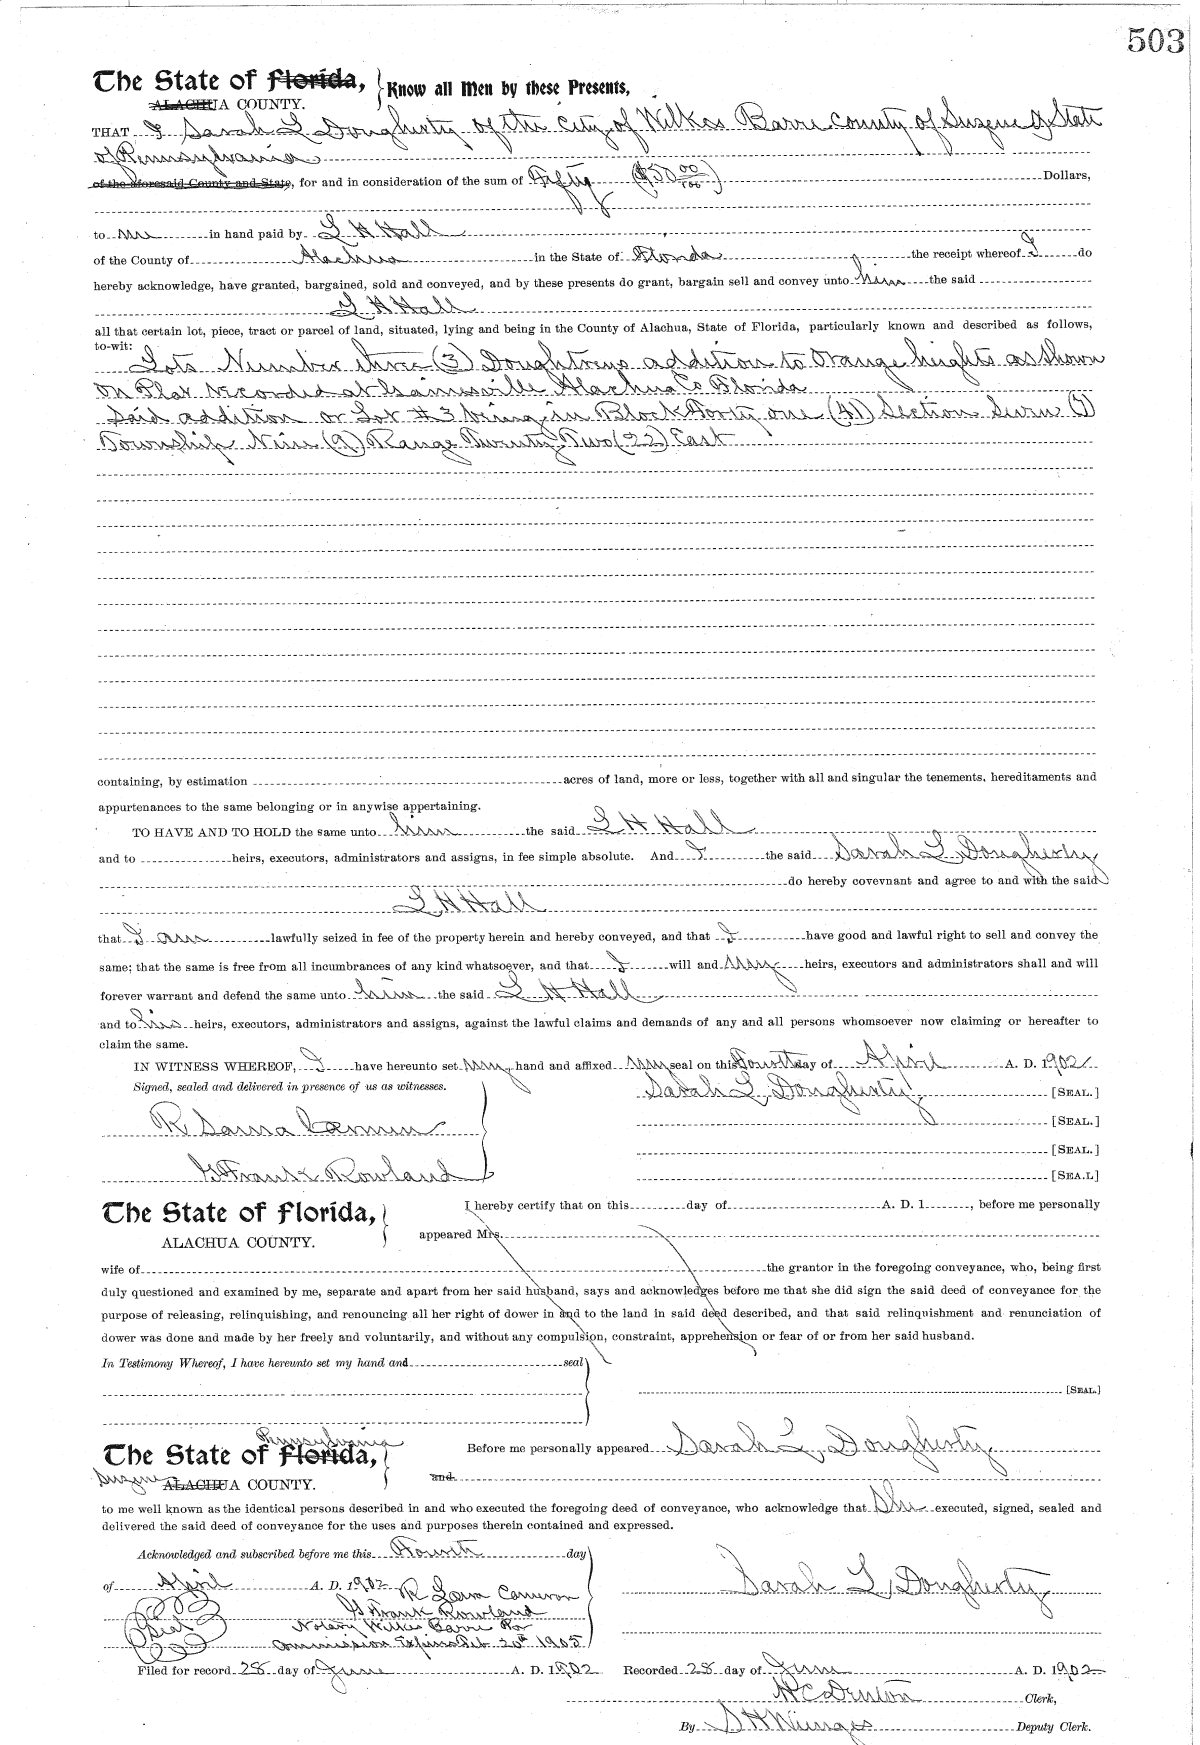 503
The State of Florida, Know all Men by these Presents,
ALACHUA COUNTY.
THAT I Sarah L Dougherty of the City of Wilkes Barre County of Luzerne & State
of Pennsylvania
of the aforesaid County and State, for and in consideration of the sum of Fifty ($50 00/100) Dollars,
to me in hand paid by L H Hall
of the County of Alachua in the State of Florida the receipt whereof I do
hereby acknowledge, have granted, bargained, sold and conveyed, and by these presents do grant, bargain sell and convey unto him the said
L H Hall
all that certain lot, piece, tract or parcel of land, situated, lying and being in the County of Alachua, State of Florida, particularly known and described as follows,
to-wit:
Lots Number three (3) Doughtreys addition to Orange heights as shown
on Plat recorded at Gainesville Alachua Co Florida
said addition or Lot #3 being in Block Forty one (41) Section Seven (7)
Township Nine (9) Range Twenty Two (22) East
containing, by estimation acres of land, more or less, together with all and singular the tenements, hereditaments and
appurtenances to the same belonging or in anywise appertaining.
TO HAVE AND TO HOLD the same unto him the said L H Hall
and to heirs, executors, administrators and assigns, in fee simple absolute. And I the said Sarah L Dougherty
do hereby covevnant and agree to and with the said
L H Hall
that I am lawfully seized in fee of the property herein and hereby conveyed, and that I have good and lawful right to sell and convey the
same; that the same is free from all incumbrances of any kind whatsoever, and that I will and my heirs, executors and administrators shall and will
forever warrant and defend the same unto him the said L H Hall
and to his heirs, executors, administrators and assigns, against the lawful claims and demands of any and all persons whomsoever now claiming or hereafter to
claim the same.
IN WITNESS WHEREOF, I have hereunto set my hand and affixed my seal on this Fourth day of April A. D. 1902
Signed, sealed and delivered in presence of us as witnesses. Sarah L Dougherty [SEAL.]
R [SEAL.]
[SEAL.]
G Frank Rowland [SEAL.]
The State of Florida, I hereby certify that on this day of A. D. 1 , before me personally
ALACHUA COUNTY. appeared Mrs.
wife of the grantor in the foregoing conveyance, who, being first
duly questioned and examined by me, separate and apart from her said husband, says and acknowledges before me that she did sign the said deed of conveyance for the
purpose of releasing, relinquishing, and renouncing all her right of dower in and to the land in said deed described, and that said relinquishment and renunciation of
dower was done and made by her freely and voluntarily, and without any compulsion, constraint, apprehension or fear of or from her said husband.
In Testimony Whereof, I have hereunto set my hand and seal
[SEAL.]
Pennsylvania
The State of Florida, Before me personally appeared Sarah L Dougherty
Luzerne ALACHUA COUNTY. and
to me well known as the identical persons described in and who executed the foregoing deed of conveyance, who acknowledge that She executed, signed, sealed and
delivered the said deed of conveyance for the uses and purposes therein contained and expressed.
Acknowledged and subscribed before me this Fourth day
of April A. D. 1902 Sarah L Dougherty
R Cameron
G Frank Rowland
Seal Notary Wilkes Barre Pa
Commission Expires Feb 20th 1905
Filed for record 28 day of June A. D. 1902 Recorded 28 day of June A. D. 1902
H C Denton Clerk,
By S H Wienges Deputy Clerk.